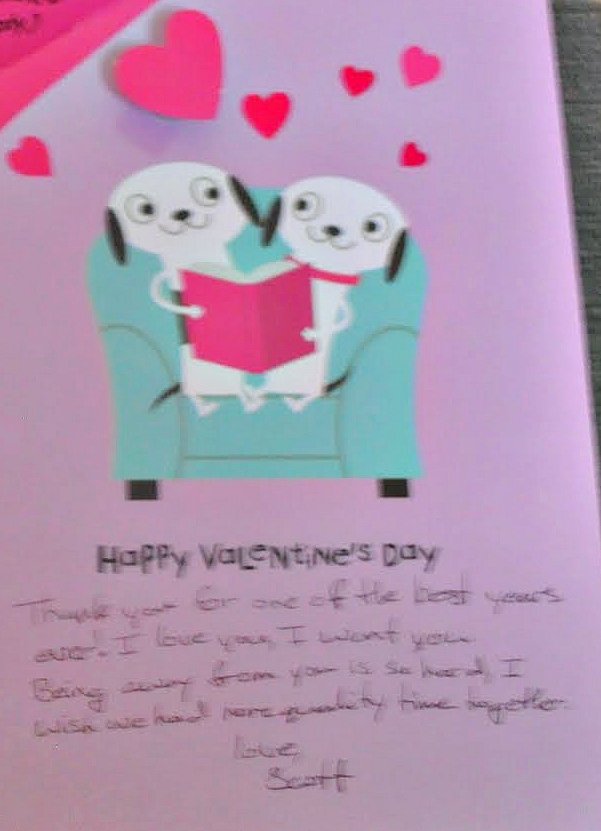 Happy Valentine's Day
Thank you for one of the best years
ever! I love you, I want you
Being away from you is so hard, I
wish we had more quality time together.
Love,
Scott